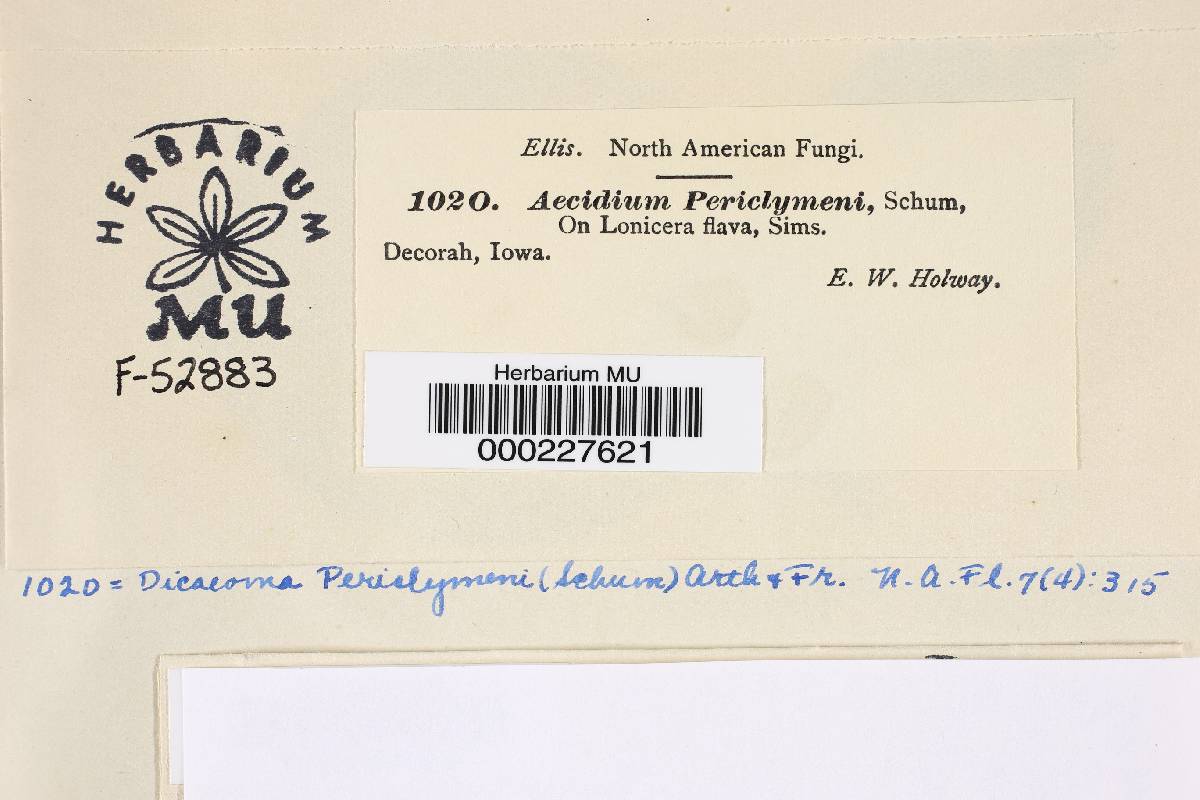 HERBARIUM
MU
F-52883
Ellis. North American Fungi.
1020. Aecidium Periclymeni, Schum,
On Lonicera flava, Sims.
Decorah, Iowa.
E. W. Holway.
Herbarium MU
000227621
1020 = Dicaeoma Periclymeni (Schum) Arth & Fr. N. A. Fl. 7(4): 315